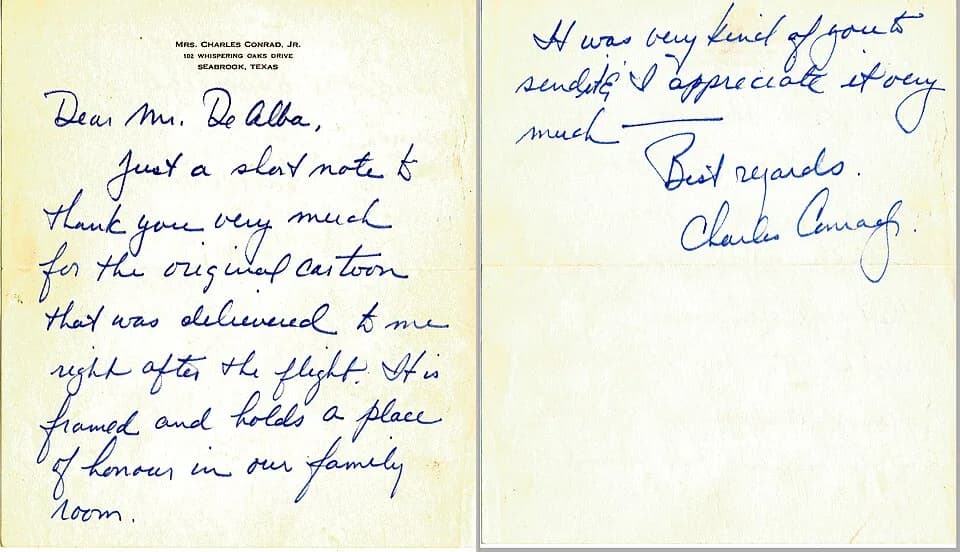 MRS. CHARLES CONRAD, JR.
102 WHISPERING OAKS DRIVE
SEABROOK, TEXAS
Dear Mr. De Alba,
Just a short note to
thank you very much
for the original cartoon
that was delievered to me
right after the flight. It is
framed and holds a place
of honour in our family
room.
It was very kind of you to
send it & I appreciate it very
much —
Best regards.
Charles Conrad Jr.